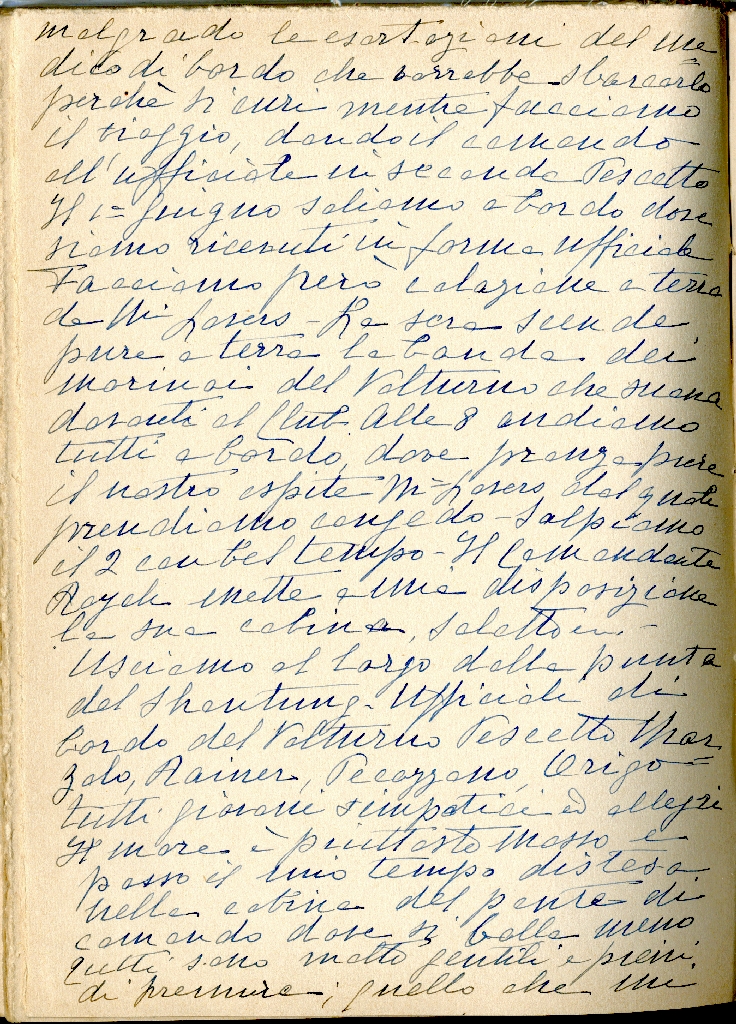 malgrado le esortazioni del me
dico di bordo che vorrebbe sbarcarlo
perchè si curi mentre facciamo
il viaggio, dando il comando
all'ufficiale in seconda Pescetto
Il 1= giugno saliamo a bordo dove
siamo ricevuti in forma ufficiale
Facciamo però colazione a terra
da Mr Lavers - La sera scende
pure a terra la banda dei
marinai del Volturno che suona
davanti al Club. Alle 8 andiamo
tutti a bordo, dove pranza pure
il nostro ospite Mr Lavers dal quale
prendiamo congedo - Salpiamo
il 2 con bel tempo - Il Comandante
mette a mia disposizione
la sua cabina, salotto
Usciamo al largo della punta
del Shantung - Ufficiali di
bordo del Volturno Pescetto Mar
zolo, Rainer, Origo =
tutti giovani simpatici ed allegri
Il mare è piuttosto mosso e
passo il mio tempo distesa
nella cabina del ponte di
comando dove si balla meno
tutti sono molto gentili e pieni
di premure; quello che mi